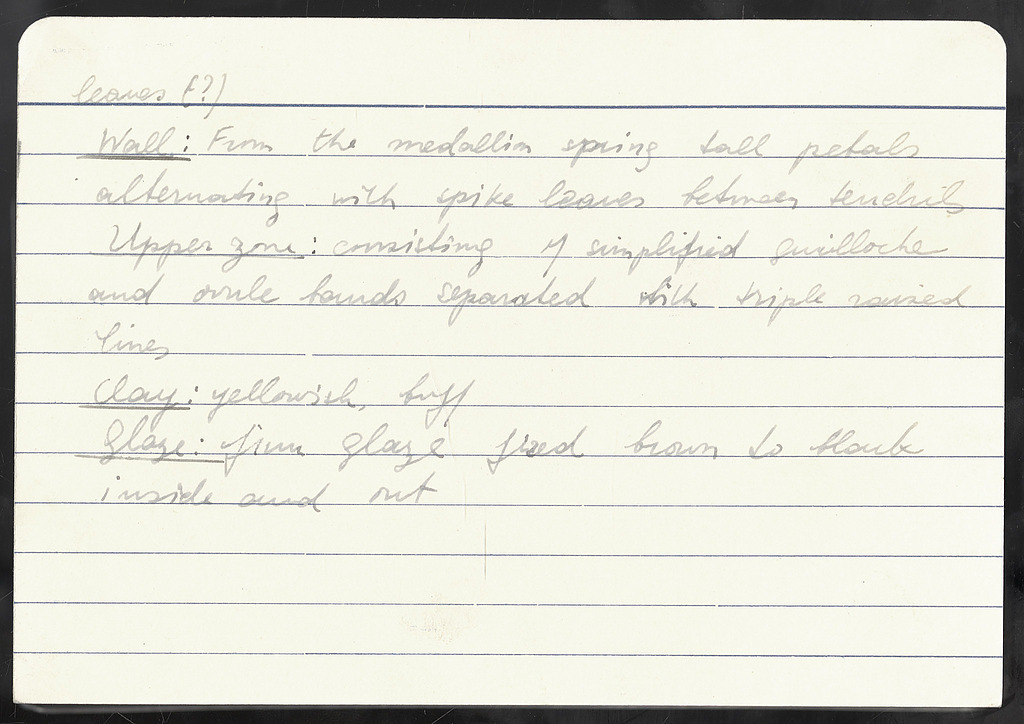 leaves (?)
Wall: From the medallion spring tall petals
alternating with spike leaves between tendrils
Upper zone: consisting of simplified guilloche
and ovule bands separated with triple raised
lines
Clay: yellowish, buff
Glaze: firm glaze fired brown to black
inside and out